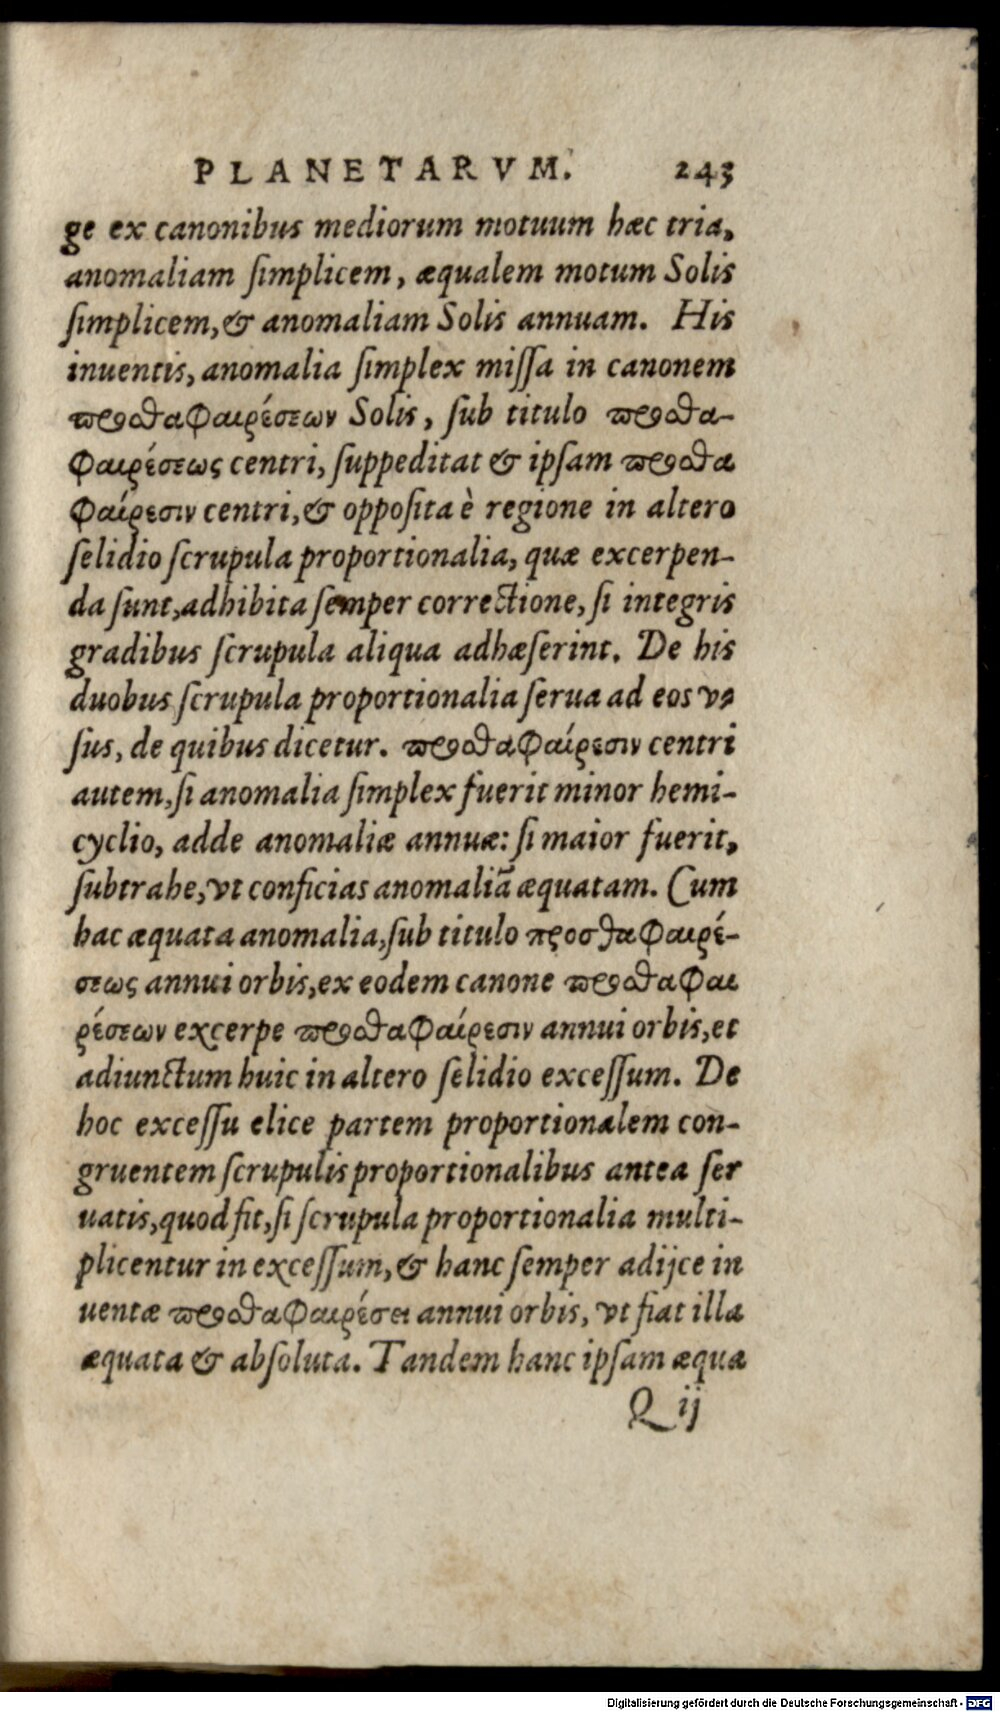 PLANETARVM. 243
ge ex canonibus mediorum motuum hæc tria,
anomaliam ſimplicem, æqualem motum Solis
ſimplicem, & anomaliam Solis annuam. His
inuentis, anomalia ſimplex miſſa in canonem
προσθαφαιρέσεων Solis, ſub titulo προσθα-
φαιρέσεως centri, ſuppeditat & ipſam προσθα
φαίρεσιν centri, & oppoſita è regione in altero
ſelidio ſcrupula proportionalia, quæ excerpen-
da ſunt, adhibita ſemper correctione, ſi integris
gradibus ſcrupula aliqua adhæſerint. De his
duobus ſcrupula proportionalia ſerua ad eos v-
ſus, de quibus dicetur. προσθαφαίρεσιν centri
autem, ſi anomalia ſimplex fuerit minor hemi-
cyclio, adde anomaliæ annuæ: ſi maior fuerit,
ſubtrahe, vt conficias anomaliã æquatam. Cum
hac æquata anomalia, ſub titulo προσθαφαιρέ-
σεως annui orbis, ex eodem canone προσθαφαι
ρέσεων excerpe προσθαφαίρεσιν annui orbis, et
adiunctum huic in altero ſelidio exceſſum. De
hoc exceſſu elice partem proportionalem con-
gruentem ſcrupulis proportionalibus antea ſer
uatis, quod fit, ſi ſcrupula proportionalia multi-
plicentur in exceſſum, & hanc ſemper adijce in
uentæ προσθαφαιρέσει annui orbis, vt fiat illa
æquata & abſoluta. Tandem hanc ipſam æqua
Q ij
Digitalisierung gefördert durch die Deutsche Forschungsgemeinschaft - DFG